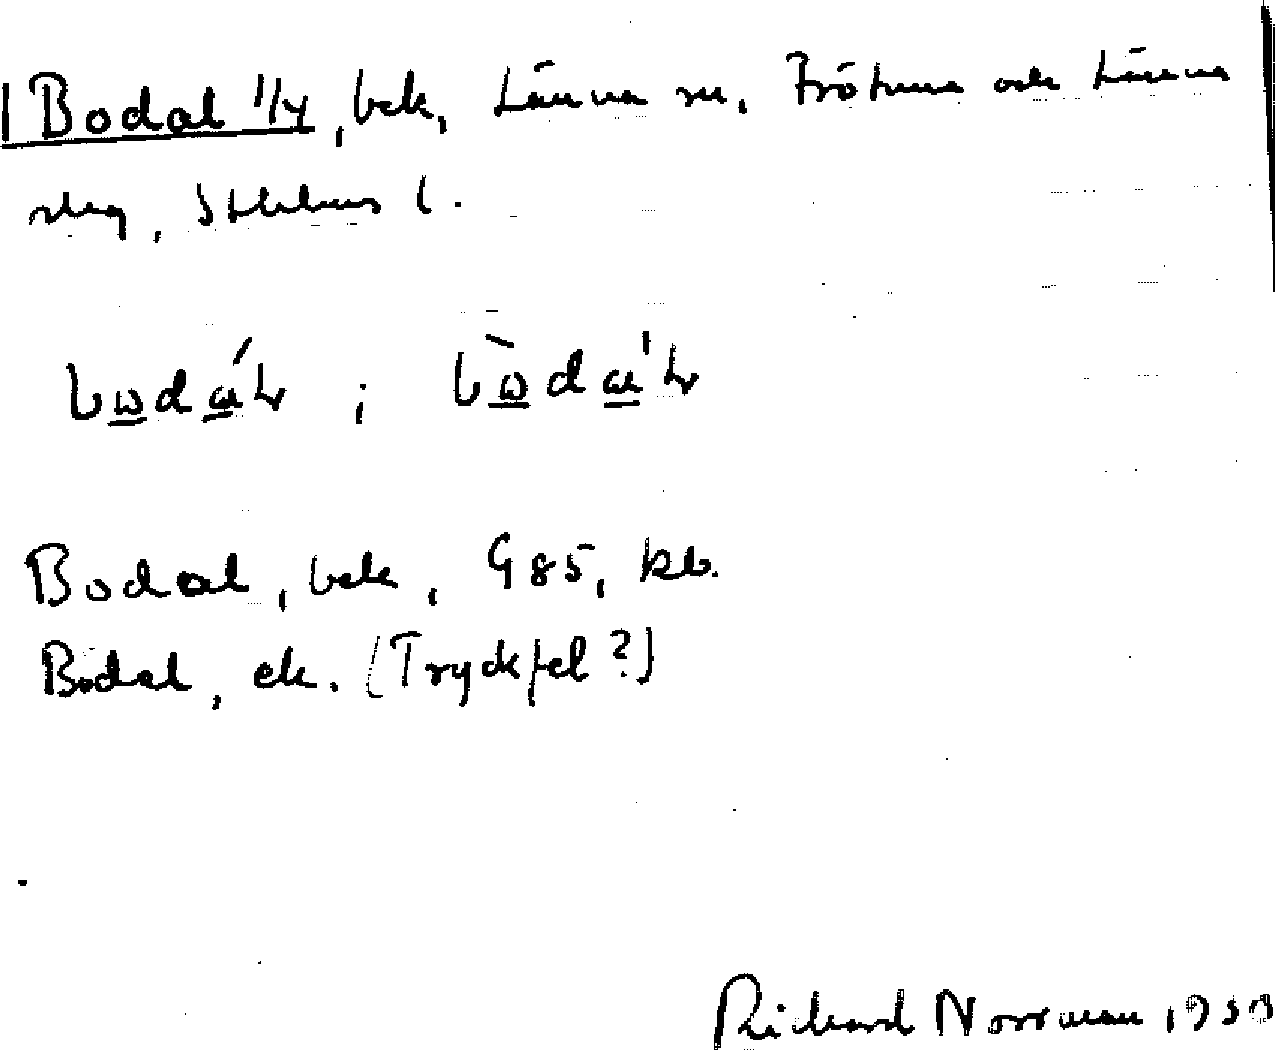 Bodal 1/4, bek, Länna sn, Frötuna och Länna
slag, Sthlms l.
bωdáʹL ; bὼdaˈL
Bodal, bek, G85, kb.
Bodal, ek. (Tryckfel?)
Richard Norrman, 1953